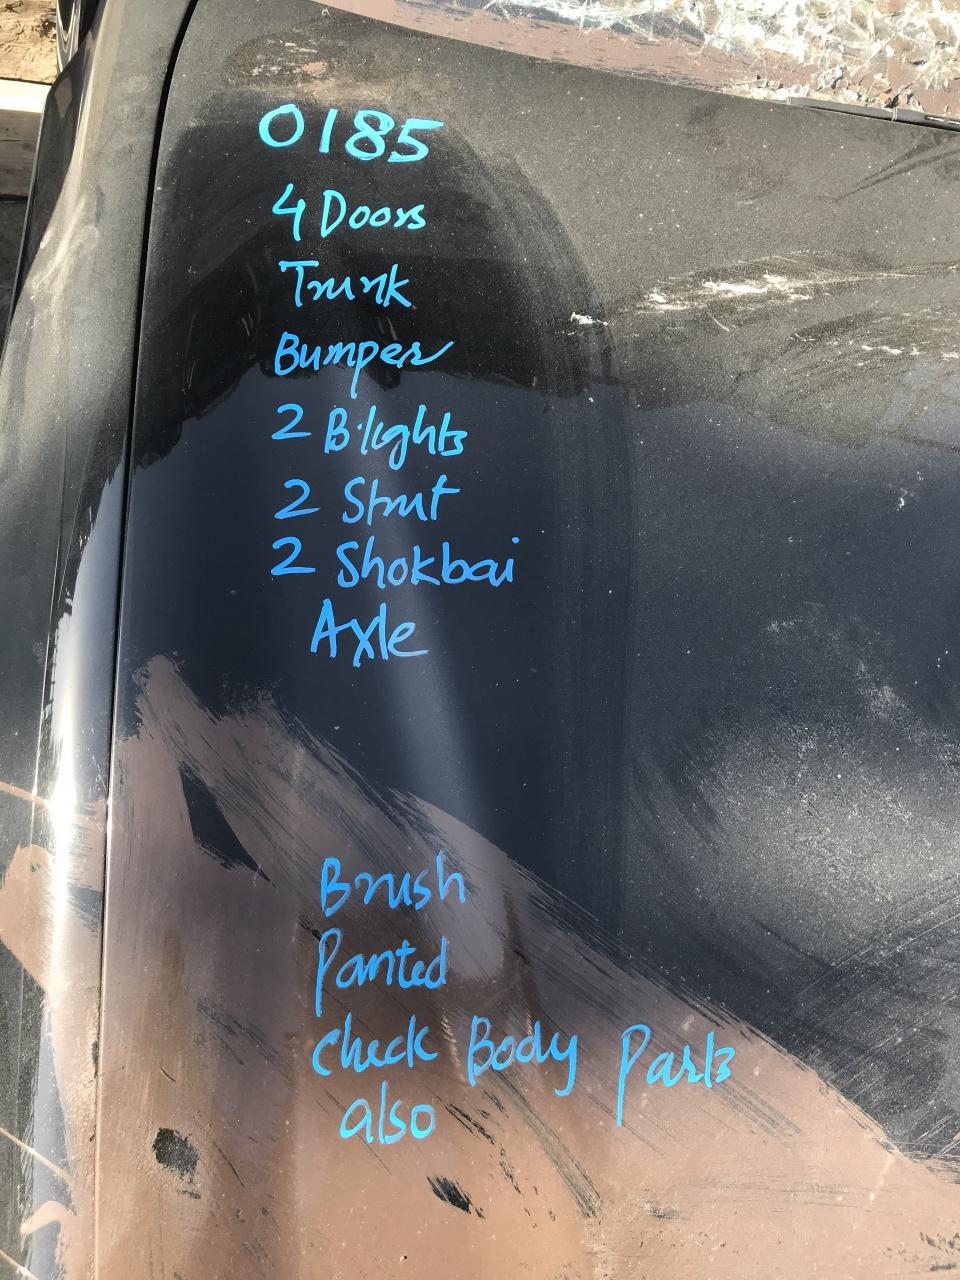 0185
4 Doors
Trunk
Bumper
2 B.lights
2 Strut
2 Shokbai
Axle
Brush
Panted
Check Body Parts
also